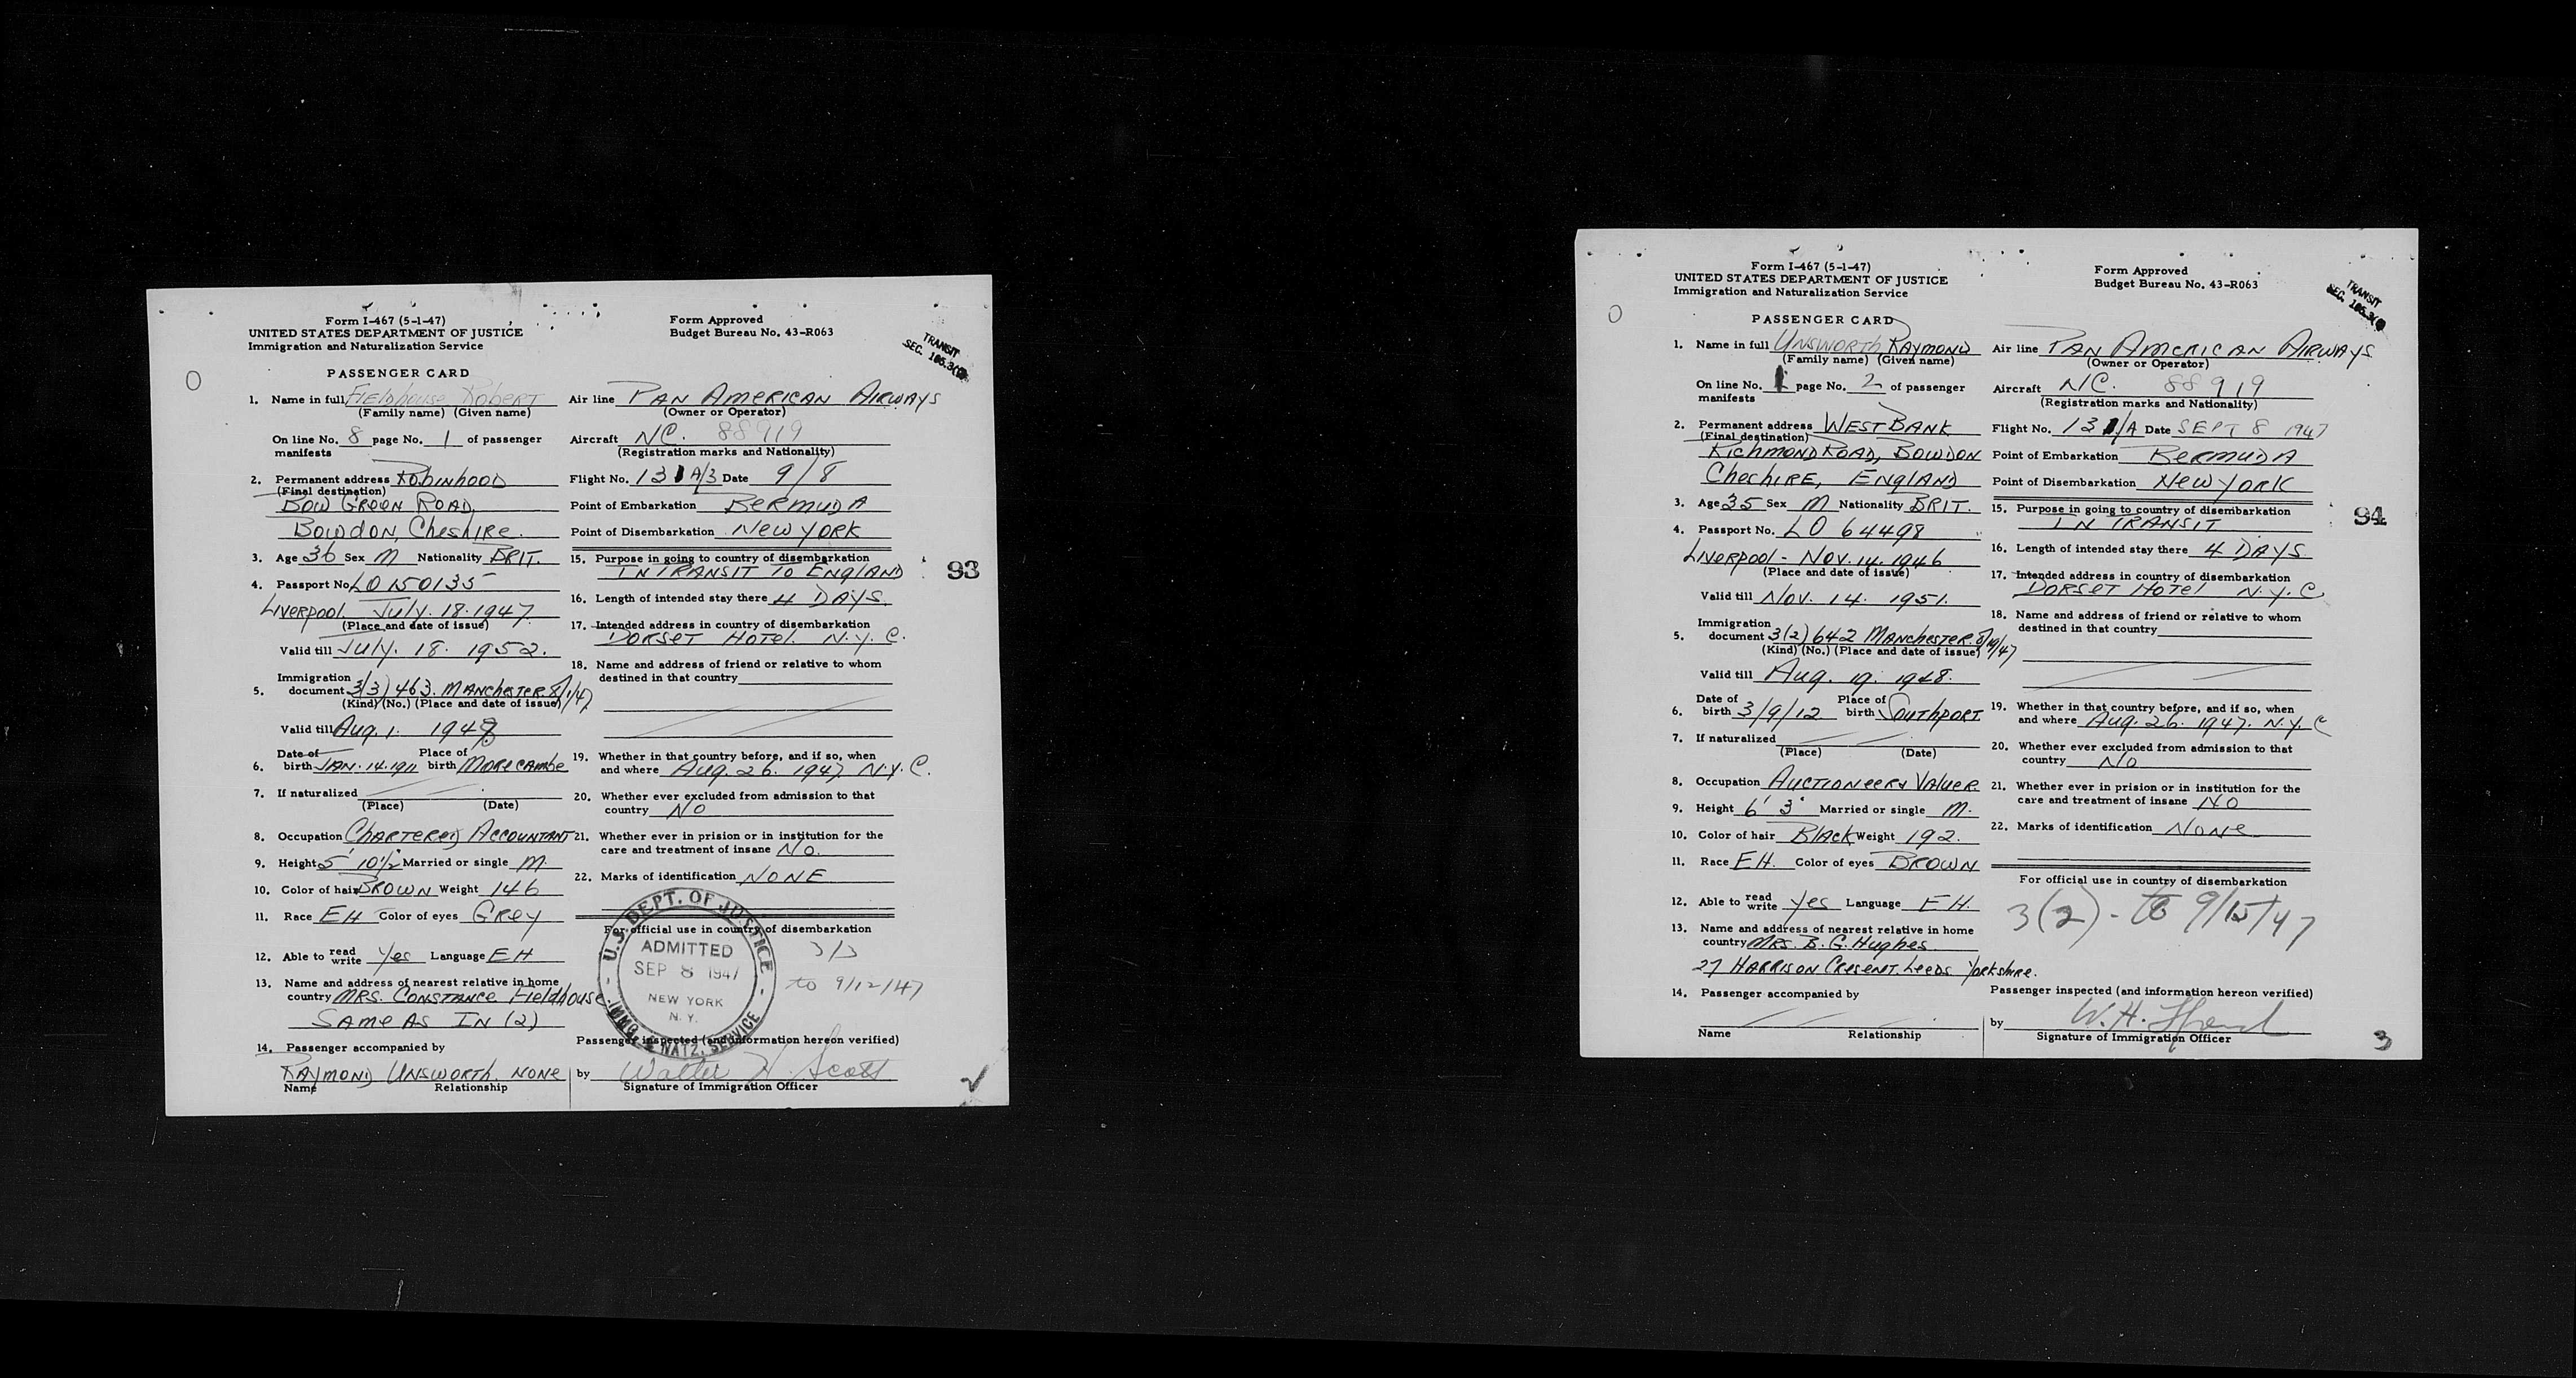 Form I-467 (5-1-47)
UNITED STATES DEPARTMENT OF JUSTICE
Immigration and Naturalization Service
Form Approved
Budget Bureau No. 43-R063
TRANSIT
SEC. 105.3
PASSENGER CARD
1. Name in full Fieldhouse Robert
(Family name) (Given name)
On line No. 8 page No. 1 of passenger
manifests
2. Permanent address Robinhood
(Final destination)
Bow Green Road,
Bowdon, Cheshire.
3. Age 36 Sex M Nationality BRIT.
4. Passport No. LO 150135
Liverpool July. 18. 1947
(Place and date of issue)
Valid till July. 18. 1952.
Immigration
5. document 3(3) 463. Manchester 8/1/47
(Kind) (No.) (Place and date of issue)
Valid till Aug. 1. 1948
Date of Place of
6. birth JAN. 14. 1911 birth Morecambe
7. If naturalized
(Place) (Date)
8. Occupation Chartered Accountant
9. Height 5' 10½ Married or single M.
10. Color of hair BROWN Weight 146
11. Race EH Color of eyes Grey
12. Able to read write Yes Language EH
13. Name and address of nearest relative in home
country MRS. Constance Fieldhouse.
SAME AS IN (2)
14. Passenger accompanied by
Raymond Unsworth. None
Name Relationship
Air line PAN AMERICAN AIRWAYS
(Owner or Operator)
Aircraft NC. 88919
(Registration marks and Nationality)
Flight No. 131 A/3 Date 9/8
Point of Embarkation BERMUDA
Point of Disembarkation New York
15. Purpose in going to country of disembarkation
IN TRANSIT TO ENGLAND
16. Length of intended stay there 4 DAYS.
17. Intended address in country of disembarkation
DORSET HOTEL. N.Y.C.
18. Name and address of friend or relative to whom
destined in that country
19. Whether in that country before, and if so, when
and where Aug. 26. 1947. N.Y.C.
20. Whether ever excluded from admission to that
country NO
21. Whether ever in prision or in institution for the
care and treatment of insane No.
22. Marks of identification NONE
For official use in country of disembarkation
3/3
to 9/12/47
U.S. DEPT. OF JUSTICE
ADMITTED
SEP 8 1947
NEW YORK
N.Y.
IMMG. & NATZ. SERVICE
Passenger inspected (and information hereon verified)
by Walter H. Scott
Signature of Immigration Officer
93
Form I-467 (5-1-47)
UNITED STATES DEPARTMENT OF JUSTICE
Immigration and Naturalization Service
Form Approved
Budget Bureau No. 43-R063
TRANSIT
SEC. 105.3
PASSENGER CARD
1. Name in full Unsworth Raymond
(Family name) (Given name)
On line No. page No. 2 of passenger
manifests
2. Permanent address WEST BANK
(Final destination)
Richmond Road, Bowdon
Cheshire, England
3. Age 35 Sex M Nationality BRIT.
4. Passport No. LO 64498
Liverpool - Nov. 14. 1946
(Place and date of issue)
Valid till Nov. 14. 1951.
Immigration
5. document 3(2) 642 Manchester. 8/19/47
(Kind) (No.) (Place and date of issue)
Valid till Aug. 19. 1948.
Date of Place of
6. birth 3/9/12 birth Southport
7. If naturalized
(Place) (Date)
8. Occupation Auctioneer & Valuer
9. Height 6' 3" Married or single M.
10. Color of hair Black Weight 192.
11. Race EH. Color of eyes BROWN
12. Able to read write Yes Language EH.
13. Name and address of nearest relative in home
country MRS. B. G. Hughes
27 Harrison Cresent. Leeds Yorkshire.
14. Passenger accompanied by
Name Relationship
Air line PAN AMERICAN AIRWAYS
(Owner or Operator)
Aircraft N/C. 88919
(Registration marks and Nationality)
Flight No. 131/A Date SEPT 8 1947
Point of Embarkation BERMUDA
Point of Disembarkation New York
15. Purpose in going to country of disembarkation
IN TRANSIT
16. Length of intended stay there 4 DAYS
17. Intended address in country of disembarkation
DORSET HOTEL N.Y.C.
18. Name and address of friend or relative to whom
destined in that country
19. Whether in that country before, and if so, when
and where Aug. 26. 1947. N.Y.C
20. Whether ever excluded from admission to that
country NO
21. Whether ever in prision or in institution for the
care and treatment of insane NO
22. Marks of identification None
For official use in country of disembarkation
3(2) - to 9/15/47
Passenger inspected (and information hereon verified)
by W. H.
Signature of Immigration Officer
94
3